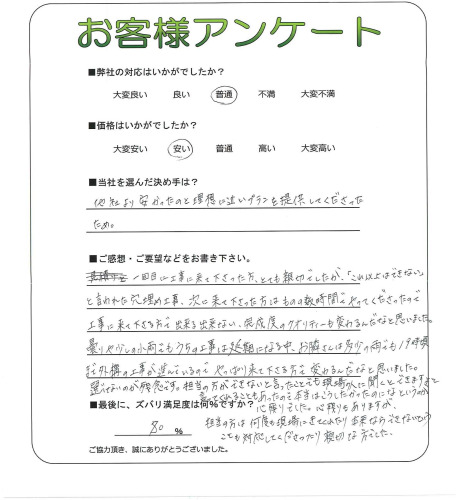 お客様アンケート
■弊社の対応はいかがでしたか?
大変良い 良い 普通 不満 大変不満
■価格はいかがでしたか?
大変安い 安い 普通 高い 大変高い
■当社を選んだ決め手は?
他社より安かったのと理想に近いプランを提供してくださった
ため。
■ご感想・ご要望などをお書き下さい。
一回目に工事に来て下さった方、とても親切でしたが、「これ以上はできない」
と言われた穴埋め工事、次に来て下さった方はものの数時間でやってくださったので
工事に来て下さる方で出来る出来ない、完成度のクオリティーも変わるんだなと思いました。
曇りや少しの小雨でもうちの工事は延期になる中、お隣さんは多少の雨でも19時頃
まで外構の工事が進んでいるので やっぱり来て下さる方で変わるんだなと思いました。
選べないのが残念です。担当の方ができないと言ったことでも現場の人に聞くとできますよと
言ってくれることもあったので本当はこうしたかったのになというのが
心残りでした。心残りもありますが、
担当の方は何度も現場にきてくれたり 出来ないという
ことも対応してくださったり親切な方でした。
■最後に、ズバリ満足度は何%ですか?
80 %
ご協力頂き、誠にありがとうございました。